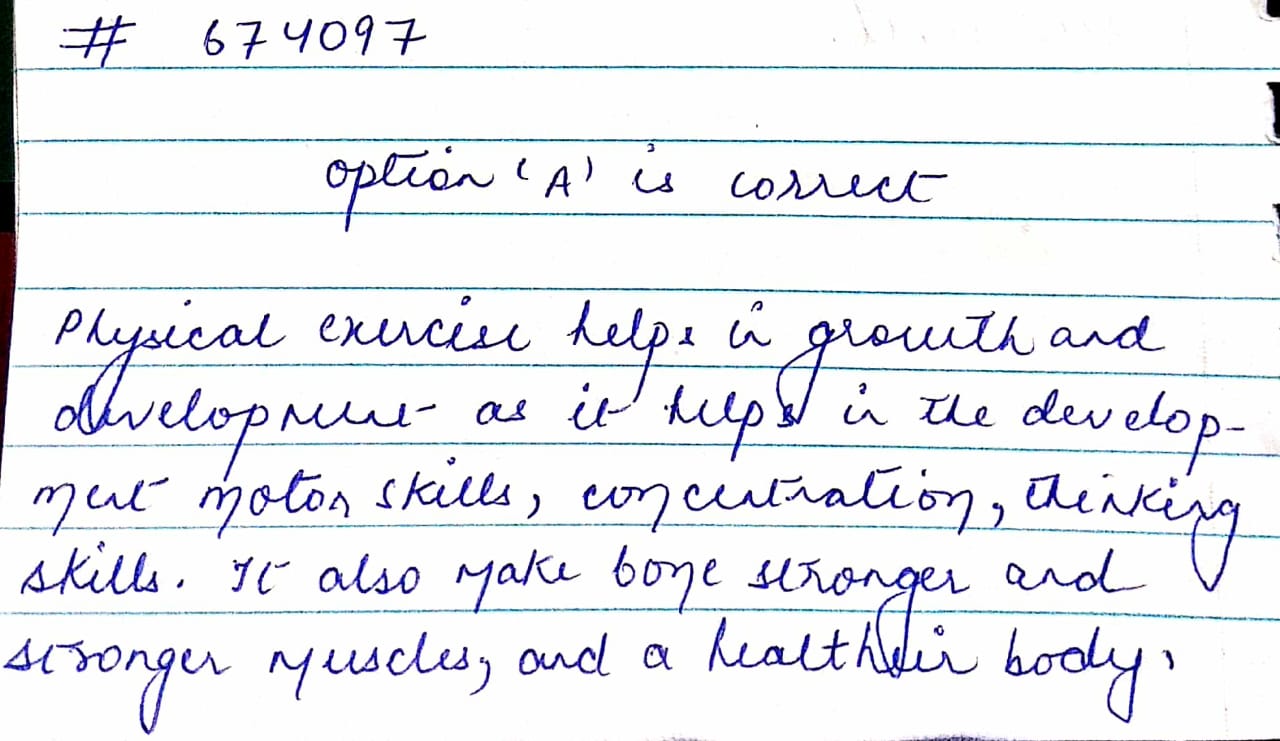 # 674097
option 'A' is correct
Physical exercise helps in growth and
development as it helps in the develop-
ment motor skills, concentration, thinking
skills. It also make bone stronger and
stronger muscles, and a healthier body.